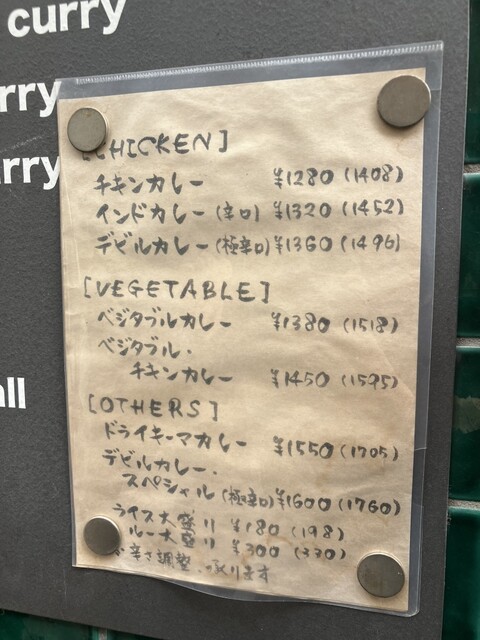 curry
rry
rry
all
[CHICKEN]
チキンカレー ¥1280(1408)
インドカレー(辛口) ¥1320(1452)
デビルカレー(極辛口) ¥1360(1496)
[VEGETABLE]
ベジタブルカレー ¥1380(1518)
ベジタブル・
チキンカレー ¥1450(1595)
[OTHERS]
ドライキーマカレー ¥1550(1705)
デビルカレー・
スペシャル(極辛口) ¥1600(1760)
ライス大盛り ¥180(198)
ルー大盛り ¥300(330)
辛さ調整 承ります